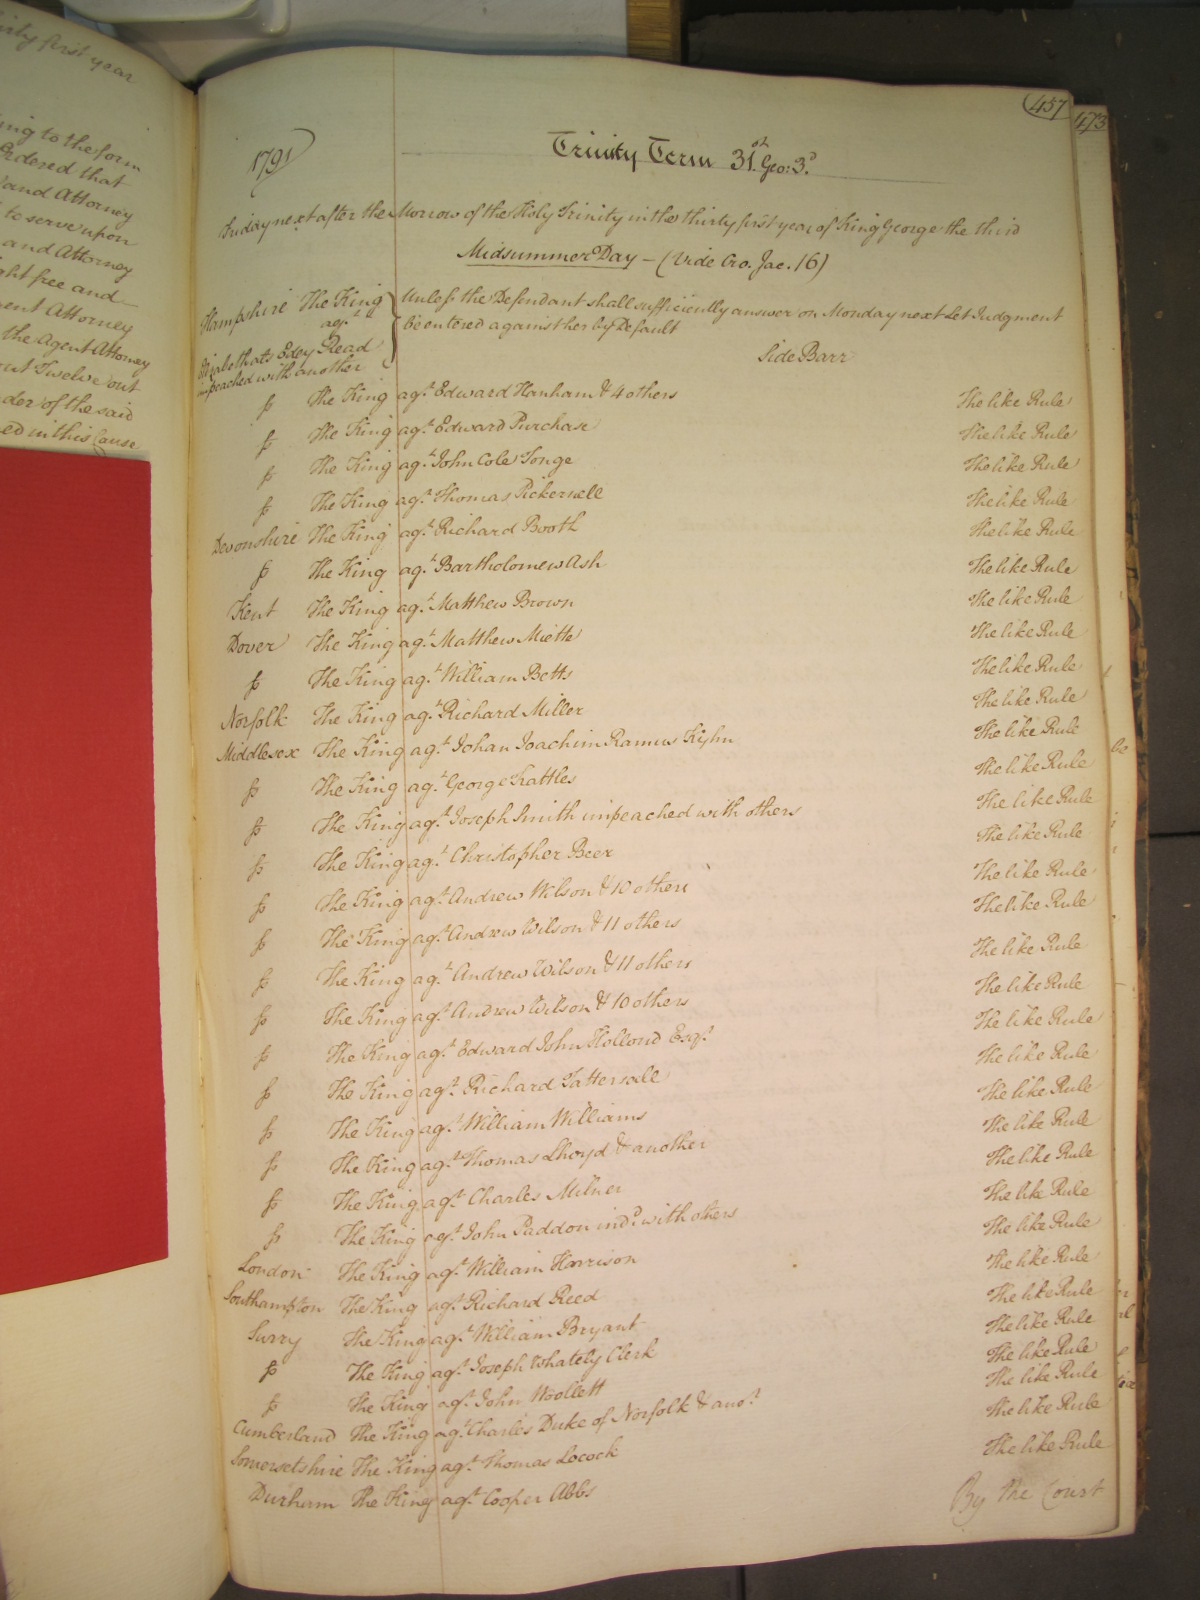 irty first year
ing to the form
Ordered that
and Attorney
to serve upon
and Attorney
ght free and
ent Attorney
the Agent Attorney
out Twelve out
der of the said
ed in this Cause
457
473
1791
Trinity Term 31st Geo: 3d.
Friday next after the Morrow of the Holy Trinity in the thirty first year of King George the third
Midsummer Day - (Vide Cro. Jac. 16)
Hampshire The King agt. Elizabeth Edey Read impeached with another } Unless the Defendant shall sufficiently answer on Monday next Let Judgment
be entered against her by Default
Side Barr
fs The King agt. Edward Hanham & 4 others The like Rule
fs The King agt. Edward Purchase The like Rule
fs The King agt. John Cole Tonge The like Rule
fs The King agt. Thomas Pickernell The like Rule
Devonshire The King agt. Richard Booth The like Rule
fs The King agt. Bartholomew Ash The like Rule
Kent The King agt. Matthew Brown The like Rule
Dover The King agt. Matthew Miette The like Rule
fs The King agt. William Betts The like Rule
Norfolk The King agt. Richard Miller The like Rule
Middlesex The King agt. Johan Joachim Ramus Kyhn The like Rule
fs The King agt. George Rattles The like Rule
fs The King agt. Joseph Smith impeached with others The like Rule
fs The King agt. Christopher Beer The like Rule
fs The King agt. Andrew Wilson & 10 others The like Rule
fs The King agt. Andrew Wilson & 11 others The like Rule
fs The King agt. Andrew Wilson & 11 others The like Rule
fs The King agt. Andrew Wilson & 10 others The like Rule
fs The King agt. Edward John Hollond Esqr. The like Rule
fs The King agt. Richard Tattersall The like Rule
fs The King agt. William Williams The like Rule
fs The King agt. Thomas Lhoyd & another The like Rule
fs The King agt. Charles Milner The like Rule
fs The King agt. John Paddon indd. with others The like Rule
London The King agt. William Harrison The like Rule
Southampton The King agt. Richard Reed The like Rule
Surry The King agt. William Bryant The like Rule
fs The King agt. Joseph Whately Clerk The like Rule
fs The King agt. John Woollett The like Rule
Cumberland The King agt. Charles Duke of Norfolk & anor. The like Rule
Somersetshire The King agt. Thomas Locock The like Rule
Durham The King agt. Cooper Abbs The like Rule
By the Court